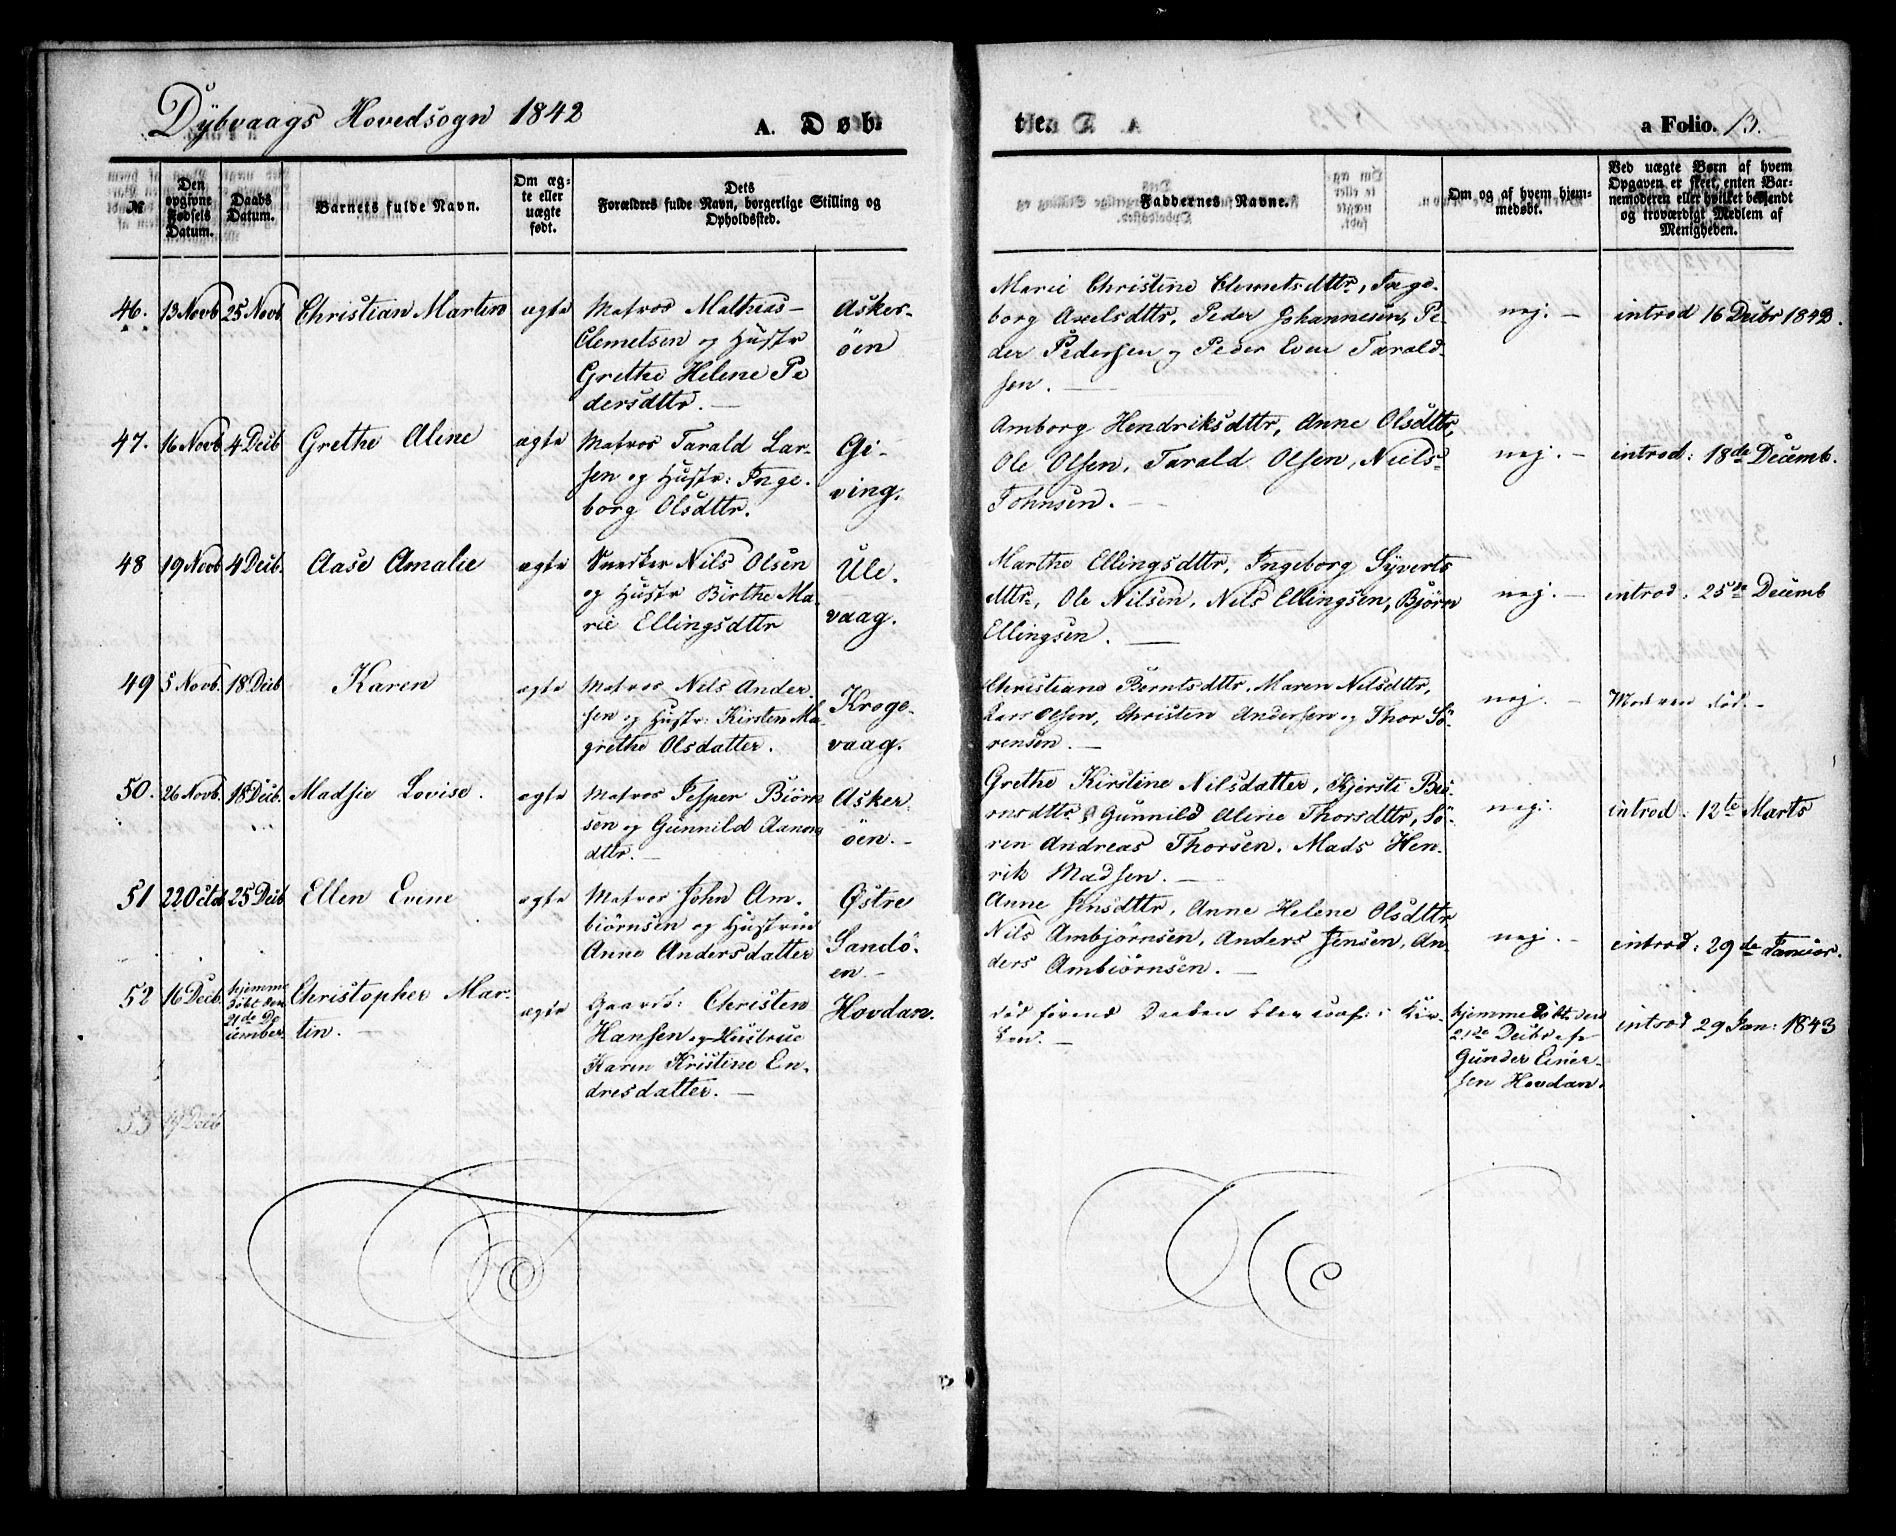 Dybvaags Hovedsogn 1842
A. Døb-
te.
a Folio. 13.
№
Den opgivne Fødsels Datum.
Daabs Datum.
Barnets fulde Navn.
Om ægte eller uægte født.
Dets Forældres fulde Navn, borgerlige Stilling og Opholdssted.
Faddernes Navne.
Om og af hvem hjemmedøbt.
Ved uægte Børn af hvem Opgaven er skeet, enten Barnemoderen eller hvilket bekjendt og troværdigt Medlem af Menigheden.
46. 13 Novb 25 Novb Christian Martin ægte
Matros Mathias
Clemetsen og Hustr
Grethe Helene Pe
dersdttr. —
Asker-
öen
Marie Christine Clemetsdttr, Inge-
borg Axelsdttr, Peder Johannesen, Pe-
der Pedersen og Peder Even Tarald-
sen. —
nej. —
introd 16 Decbr 1842.
47. 16 Novb 4 Decb Grethe Aline ægte
Matros Tarald Lar-
sen og Hustr: Inge-
borg Olsdttr.
Gi-
ving.
Amborg Hendriksdttr, Anne Olsdttr,
Ole Olsen, Tarald Olsen, Niels
Johnsen. —
nej. —
introd: 18de Decemb.
48 19 Novb 4 Decb. Aase Amalie ægte
Snedker Nils Olsen
og Hustr Birthe Ma-
rie Ellingsdttr
Ule-
vaag.
Marthe Ellingsdttr, Ingeborg Syverts
dttr, Ole Nilsen, Nils Ellingsen, Björn
Ellingsen. —
nej. —
introd: 25de Decemb
49 5 Novb. 18 Decb Karen ægte
Matros Nils Ander-
sen og Hustr: Kirsten Ma-
grethe Olsdatter.
Kroge-
vaag.
Christiane Berntsdttr, Maren Nilsdttr,
Lars Olsen, Christen Andersen og Thor Sö-
rensen. —
nej. —
Moderen död. —
50. 26 Novb. 18 Decb. Madsie Lovise. ægte
Matros Jesper Biörn
sen og Gunnild Aanons
dttr. —
Asker-
öen. —
Grethe Kirstine Nilsdatter, Kjersti Biö-
rnsdttr & Gunnild Aline Thorsdttr, Sö-
ren Andreas Thorsen, Mads Hen-
rik Madsen. —
nej:
introd: 12te Marts
51 22 Octb 25 Decb Ellen Evine ægte
Matros John Am-
biörnsen og Hustrue
Anne Andersdatter
Østre
Sandö-
en. —
Anne Jensdttr, Anne Helene Olsdttr
Nils Ambjörnsen, Anders Jensen, An-
ders Ambiörnsen. —
nej. —
introd: 29de Januar.
52 16 Decb.
hjemme
döbt den
21de De
cember
Christopher Mar-
tin. —
ægte
Gaardb: Christen
Hansen og Hustrue
Karen Kristine En-
dresdatter. —
Hovdan.
död förend Daaben blev conf: i Kir-
ken. —
hjemmedöbt den
21de Decbr af
Gunder Einer-
sen Hovdan.
introd 29 Jan: 1843
53 19 Decb